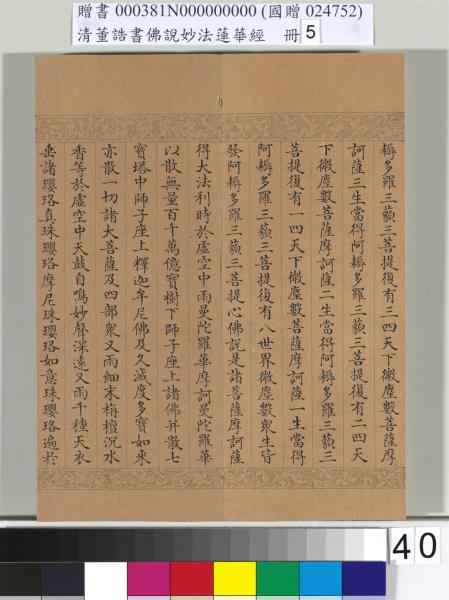 贈書 000381N000000000 (國贈 024752)
清董誥書佛說妙法蓮華經 冊 5
耨多羅三藐三菩提復有三四天下微塵數菩薩摩
訶薩三生當得阿耨多羅三藐三菩提復有二四天
下微塵數菩薩摩訶薩二生當得阿耨多羅三藐三
菩提復有一四天下微塵數菩薩摩訶薩一生當得
阿耨多羅三藐三菩提復有八世界微塵數衆生皆
發阿耨多羅三藐三菩提心佛說是諸菩薩摩訶薩
得大法利時於虛空中雨曼陀羅華摩訶曼陀羅華
以散無量百千萬億寶樹下師子座上諸佛并散七
寶塔中師子座上釋迦牟尼佛及久滅度多寶如來
亦散一切諸大菩薩及四部衆又雨細末栴檀沉水
香等於虛空中天鼓自鳴妙聲深遠又雨千種天衣
垂諸瓔珞真珠瓔珞摩尼珠瓔珞如意珠瓔珞遍於
40